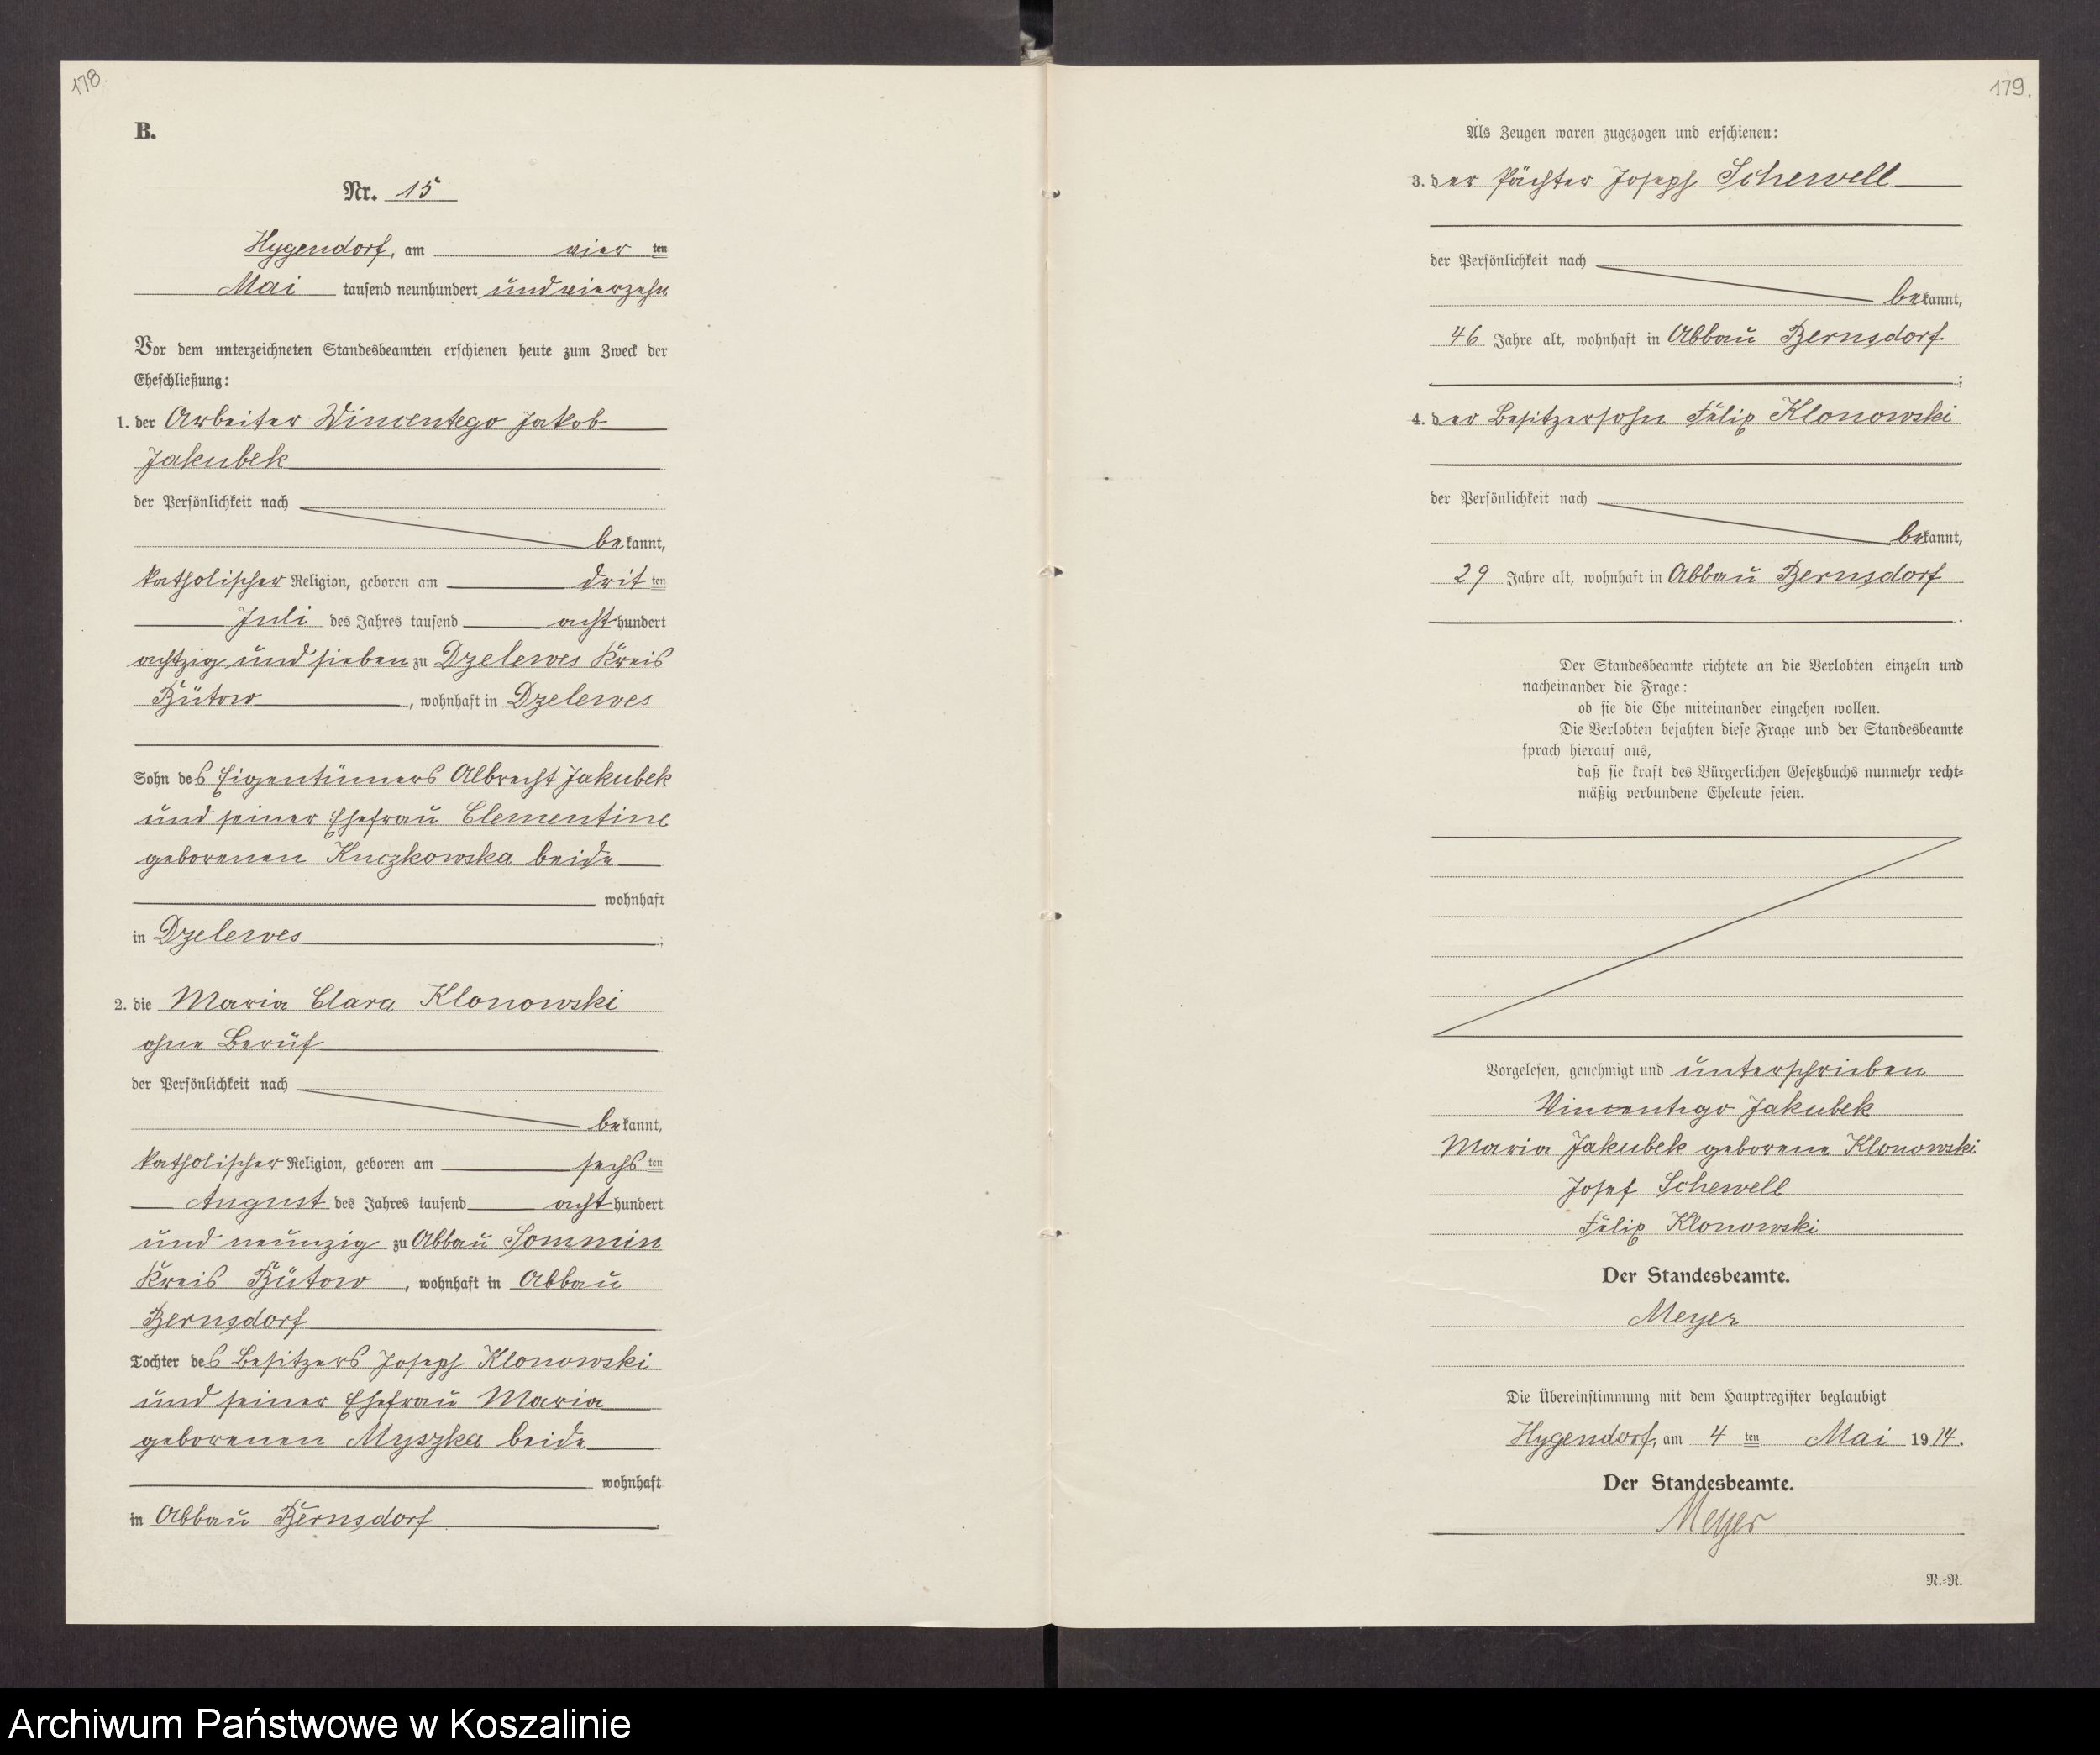 178.
B.
Nr. 15
Hygendorf, am vier ten
Mai tausend neunhundert undvierzehn
Vor dem unterzeichneten Standesbeamten erschienen heute zum Zweck der
Eheschließung:
1. der Arbeiter Wincentego Jakob
Jakubek
der Persönlichkeit nach
bekannt,
katholischer Religion, geboren am drit ten
Juli des Jahres tausend acht hundert
achtzig und sieben zu Dzelewes Kreis
Bütow, wohnhaft in Dzelewes
Sohn des Eigentümers Albrecht Jakubek
und seiner Ehefrau Clementine
geborenen Kuczkowska beide
wohnhaft
in Dzelewes;
2. die Maria Clara Klonowski
ohne Beruf
der Persönlichkeit nach
bekannt,
katholischer Religion, geboren am sechs ten
August des Jahres tausend acht hundert
und neunzig zu Abbau Sommin
Kreis Bütow, wohnhaft in Abbau
Bernsdorf
Tochter des Besitzers Joseph Klonowski
und seiner Ehefrau Maria
geborenen Myszka beide
wohnhaft
in Abbau Bernsdorf.
179.
Als Zeugen waren zugezogen und erschienen:
3. der Pächter Joseph Schewell
der Persönlichkeit nach
bekannt,
46 Jahre alt, wohnhaft in Abbau Bernsdorf
;
4. der Besitzersohn Felix Klonowski
der Persönlichkeit nach
bekannt,
29 Jahre alt, wohnhaft in Abbau Bernsdorf
.
Der Standesbeamte richtete an die Verlobten einzeln und
nacheinander die Frage:
ob sie die Ehe miteinander eingehen wollen.
Die Verlobten bejahten diese Frage und der Standesbeamte
sprach hierauf aus,
daß sie kraft des Bürgerlichen Gesetzbuchs nunmehr recht-
mäßig verbundene Eheleute seien.
Vorgelesen, genehmigt und unterschrieben
Wincentego Jakubek
Maria Jakubek geborene Klonowski
Josef Schewell
Felix Klonowski
Der Standesbeamte.
Meyer
Die Übereinstimmung mit dem Hauptregister beglaubigt
Hygendorf, am 4 ten Mai 1914.
Der Standesbeamte.
Meyer
N.-R.
Archiwum Państwowe w Koszalinie